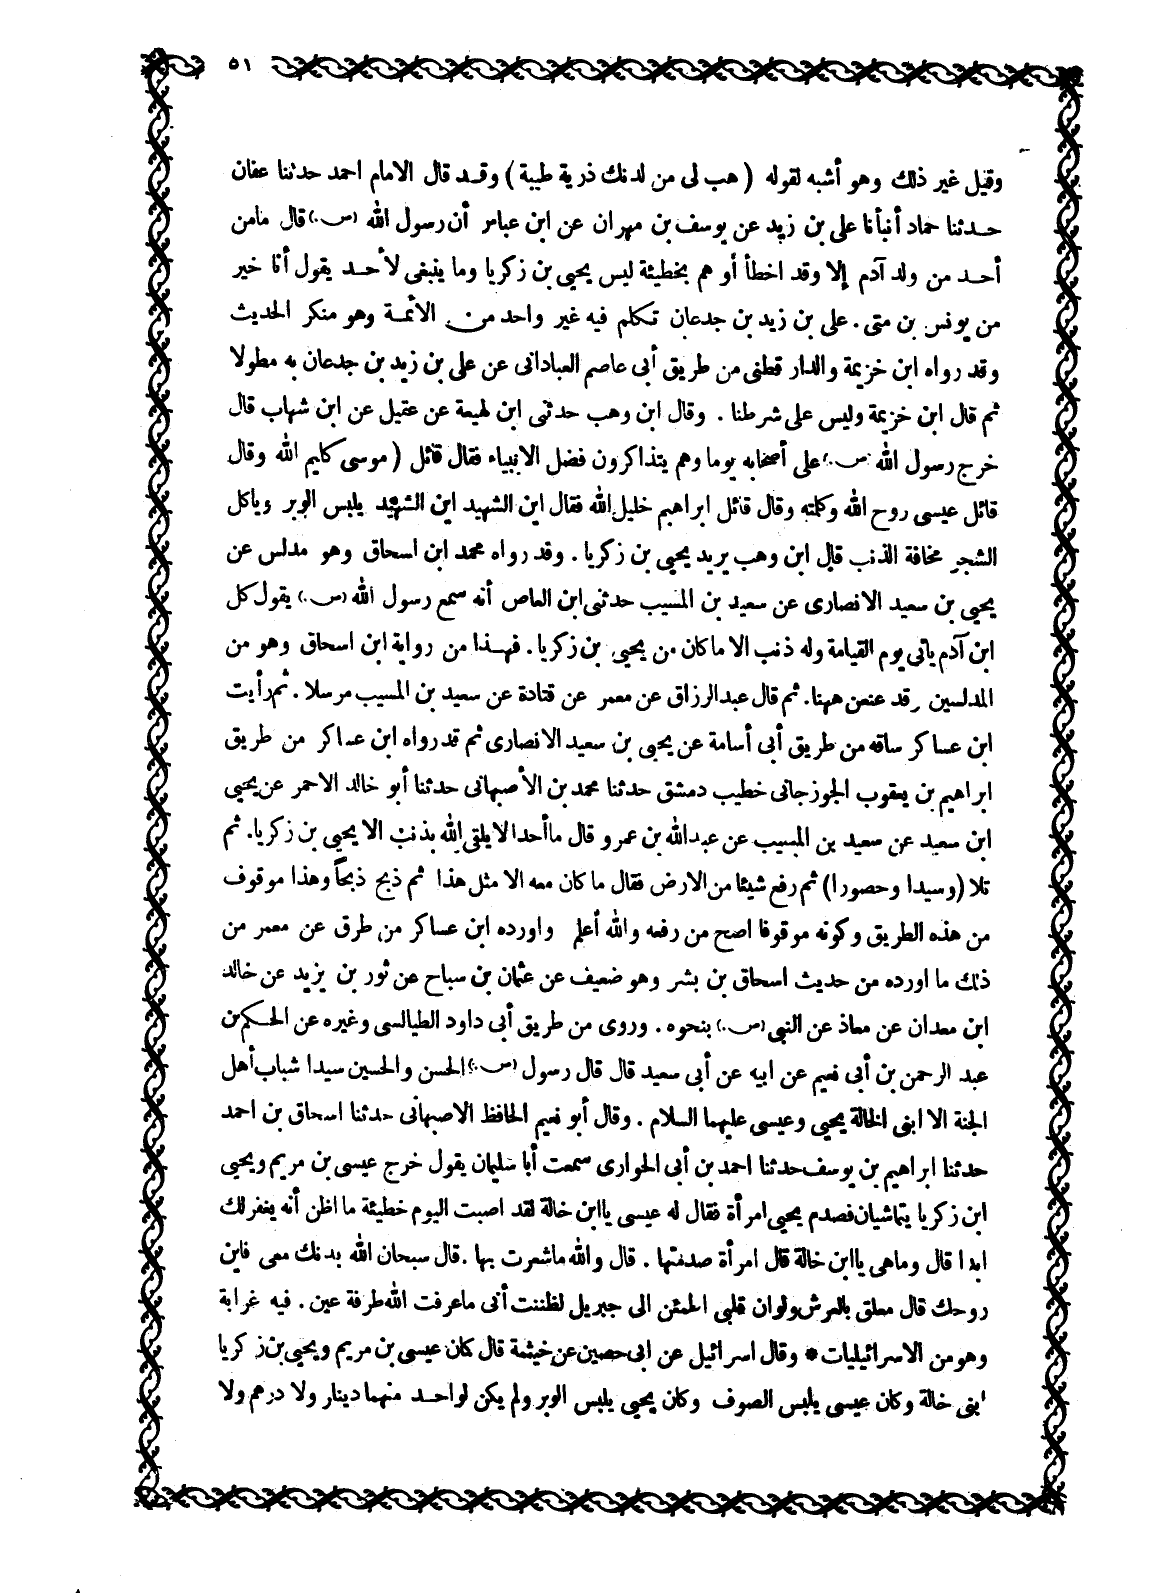 ٥١
وقيل غير ذلك وهو أشبه لقوله ( هب لى من لدنك ذرية طيبة ) وقد قال الامام احمد حدثنا عفان
حدثنا حماد أنبأنا على بن زيد عن يوسف بن مهران عن ابن عباس أن رسول الله (ص.) قال مامن
أحد من ولد آدم إلا وقد اخطأ أو هم بخطيئة ليس يحيى بن زكريا وما ينبغى لأحد يقول أنا خير
من يونس بن متى . على بن زيد بن جدعان تكلم فيه غير واحد من الأئمة وهو منكر الحديث
وقد رواه ابن خزيمة والدار قطنى من طريق أبى عاصم العبادانى عن على بن زيد بن جدعان به مطولا
ثم قال ابن خزيمة وليس على شرطنا . وقال ابن وهب حدثنى ابن لهيعة عن عقيل عن ابن شهاب قال
خرج رسول الله (ص.) على أصحابه يوما وهم يتذاكرون فضل الانبياء فقال قائل ( موسى كليم الله وقال
قائل عيسى روح الله وكلمته وقال قائل ابراهيم خليل الله فقال اين الشهيد اين الشهيد يلبس الوبر وياكل
الشجر مخافة الذنب قال ابن وهب يريد يحيى بن زكريا . وقد رواه محمد ابن اسحاق وهو مدلس عن
يحيى بن سعيد الانصارى عن سعيد بن المسيب حدثنى ابن العاص أنه سمع رسول الله (ص.) يقول كل
ابن آدم ياتى يوم القيامة وله ذنب الا ماكان من يحيى بن زكريا . فهذا من رواية ابن اسحاق وهو من
المدلسين وقد عنعن ههنا . ثم قال عبدالرزاق عن معمر عن قتادة عن سعيد بن المسيب مرسلا . ثم رأيت
ابن عساكر ساقه من طريق أبى أسامة عن يحيى بن سعيد الانصارى ثم قد رواه ابن عساكر من طريق
ابراهيم بن يعقوب الجوزجانى خطيب دمشق حدثنا محمد بن الأصبهانى حدثنا أبو خالد الاحمر عن يحيى
ابن سعيد عن سعيد بن المسيب عن عبدالله بن عمرو قال ماأحد الا يلقى الله بذنب الا يحيى بن زكريا . ثم
تلا (وسيدا وحصورا) ثم رفع شيئا من الارض فقال ما كان معه الا مثل هذا ثم ذبح ذبحاً وهذا موقوف
من هذه الطريق وكونه موقوفا اصح من رفعه والله أعلم واورده ابن عساكر من طرق عن معمر من
ذلك ما اورده من حديث اسحاق بن بشر وهو ضعيف عن عثمان بن سباح عن ثور بن يزيد عن خالد
ابن معدان عن معاذ عن النبى (ص.) بنحوه . وروى من طريق أبى داود الطيالسى وغيره عن الحكم بن
عبد الرحمن بن أبى نعيم عن ابيه عن أبى سعيد قال قال رسول (ص.) الحسن والحسين سيدا شباب أهل
الجنة الا ابنى الخالة يحيى وعيسى عليهما السلام . وقال أبو نعيم الحافظ الاصبهانى حدثنا اسحاق بن احمد
حدثنا ابراهيم بن يوسف حدثنا احمد بن أبى الحوارى سمعت أبا سليمان يقول خرج عيسى بن مريم ويحيى
ابن زكريا يتماشيان فصدم يحيى امرأة فقال له عيسى ياابن خالة لقد اصبت اليوم خطيئة ما اظن أنه يغفر لك
ابدا قال وماهى ياابن خالة قال امرأة صدمتها . قال والله ماشعرت بها . قال سبحان الله بدنك معى فاين
روحك قال معلق بالعرش ولو ان قلبى اطمئن الى جبريل لظننت أنى ماعرفت الله طرفة عين . فيه غرابة
وهو من الاسرائيليات * وقال اسرائيل عن ابى حصين عن خيثمة قال كان عيسى بن مريم ويحيى بن زكريا
ابنى خالة وكان عيسى يلبس الصوف وكان يحيى يلبس الوبر ولم يكن لواحد منهما دينار ولا درهم ولا